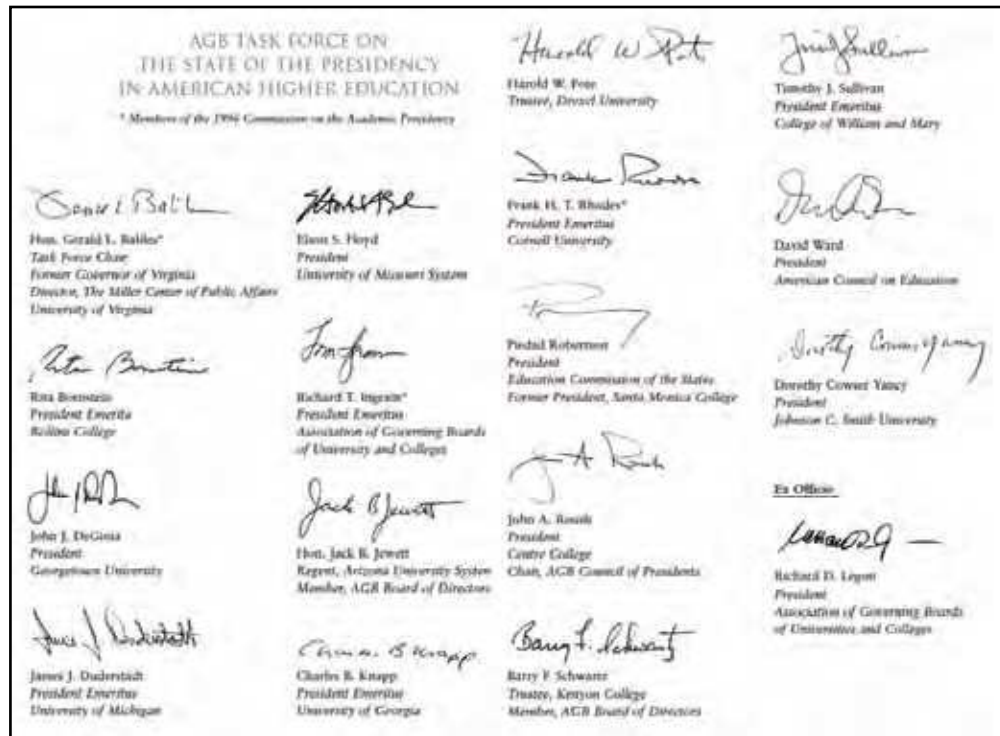 AGB TASK FORCE ON
THE STATE OF THE PRESIDENCY
IN AMERICAN HIGHER EDUCATION
* Members of the 1996 Commission on the Academic Presidency
Hon. Gerald L. Baliles*
Task Force Chair
Former Governor of Virginia
Director, The Miller Center of Public Affairs
University of Virginia
Rita Bornstein
President Emerita
Rollins College
John J. DeGioia
President
Georgetown University
James J. Duderstadt
President Emeritus
University of Michigan
Elson S. Floyd
President
University of Missouri System
Richard T. Ingram*
President Emeritus
Association of Governing Boards
of University and Colleges
Jack B Jewett
Hon. Jack B. Jewett
Regent, Arizona University System
Member, AGB Board of Directors
Charles B Knapp
Charles B. Knapp
President Emeritus
University of Georgia
Harold W
Harold W. Pote
Trustee, Drexel University
Frank
Frank H. T. Rhodes*
President Emeritus
Cornell University
Piedad Robertson
President
Education Commission of the States
Former President, Santa Monica College
John A. Roush
President
Centre College
Chair, AGB Council of Presidents
Barry F. Schwartz
Barry F. Schwartz
Trustee, Kenyon College
Member, AGB Board of Directors
Timothy J. Sullivan
President Emeritus
College of William and Mary
David Ward
President
American Council on Education
Dorothy Cowser Yancy
Dorothy Cowser Yancy
President
Johnson C. Smith University
Ex Officio
Richard D. Legon
President
Association of Governing Boards
of Universities and Colleges